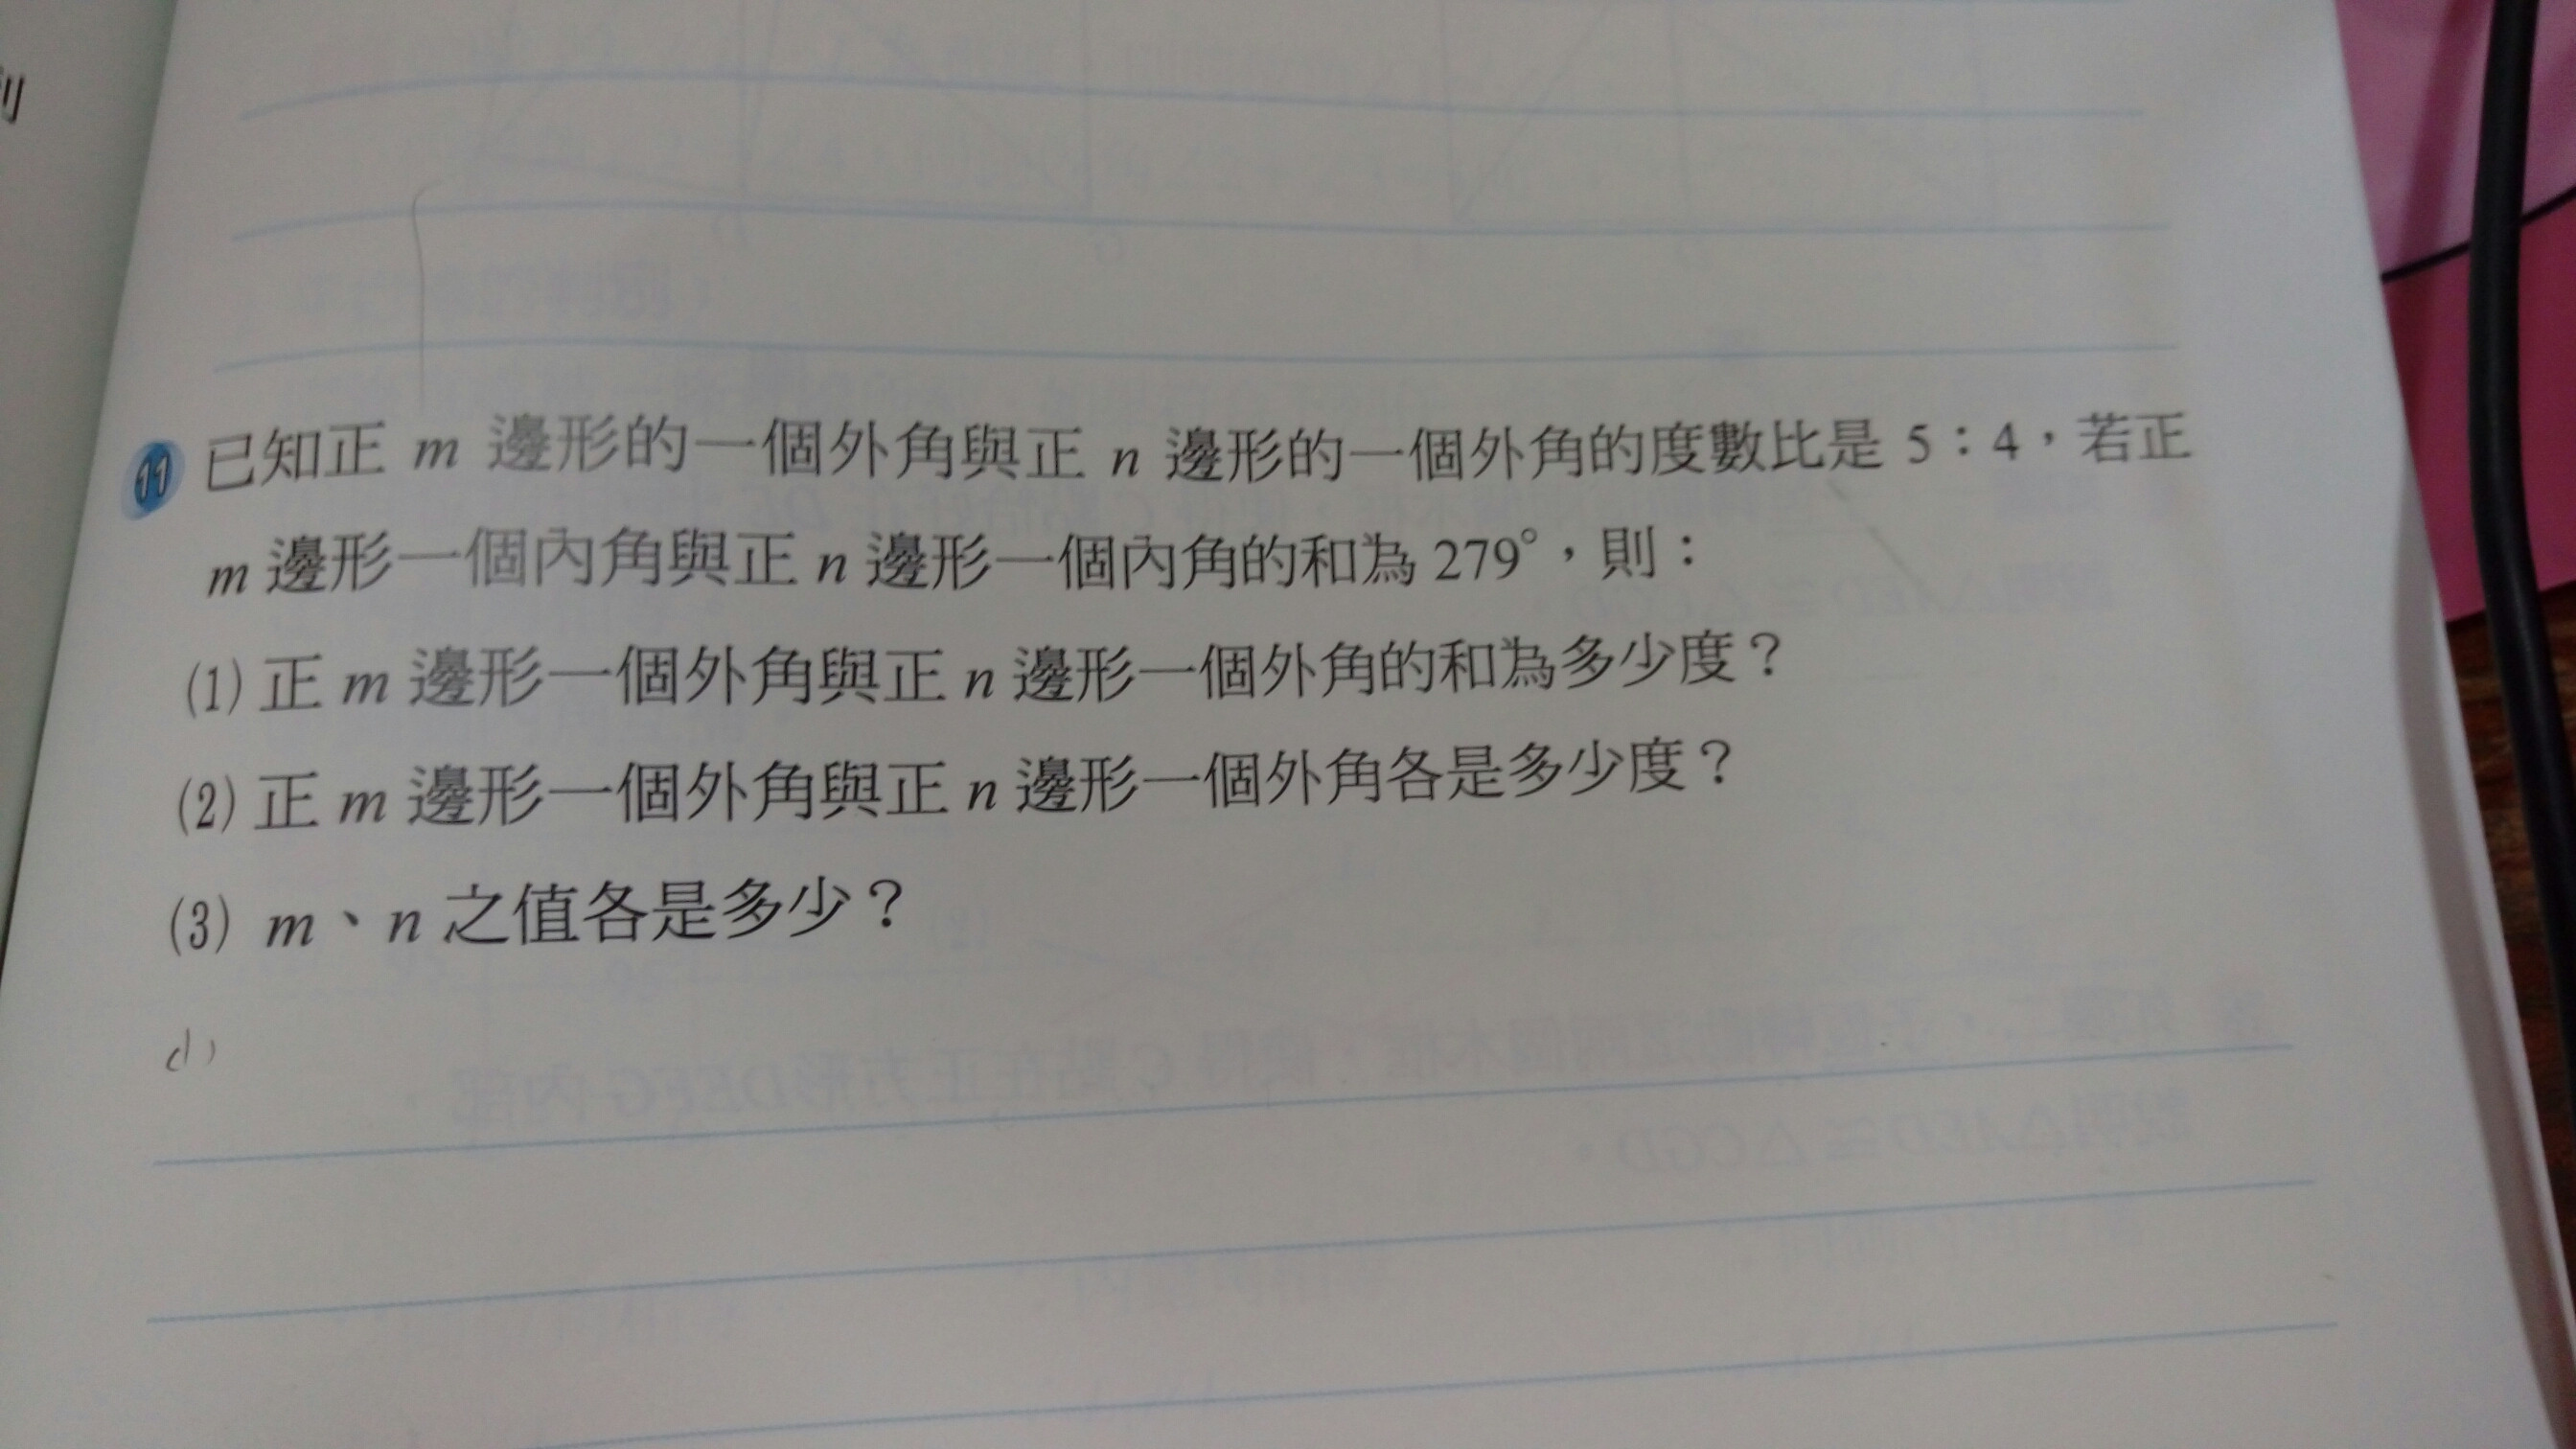 ⓫ 已知正 m 邊形的一個外角與正 n 邊形的一個外角的度數比是 5：4，若正
m 邊形一個內角與正 n 邊形一個內角的和為 279°，則：
(1) 正 m 邊形一個外角與正 n 邊形一個外角的和為多少度？
(2) 正 m 邊形一個外角與正 n 邊形一個外角各是多少度？
(3) m、n 之值各是多少？